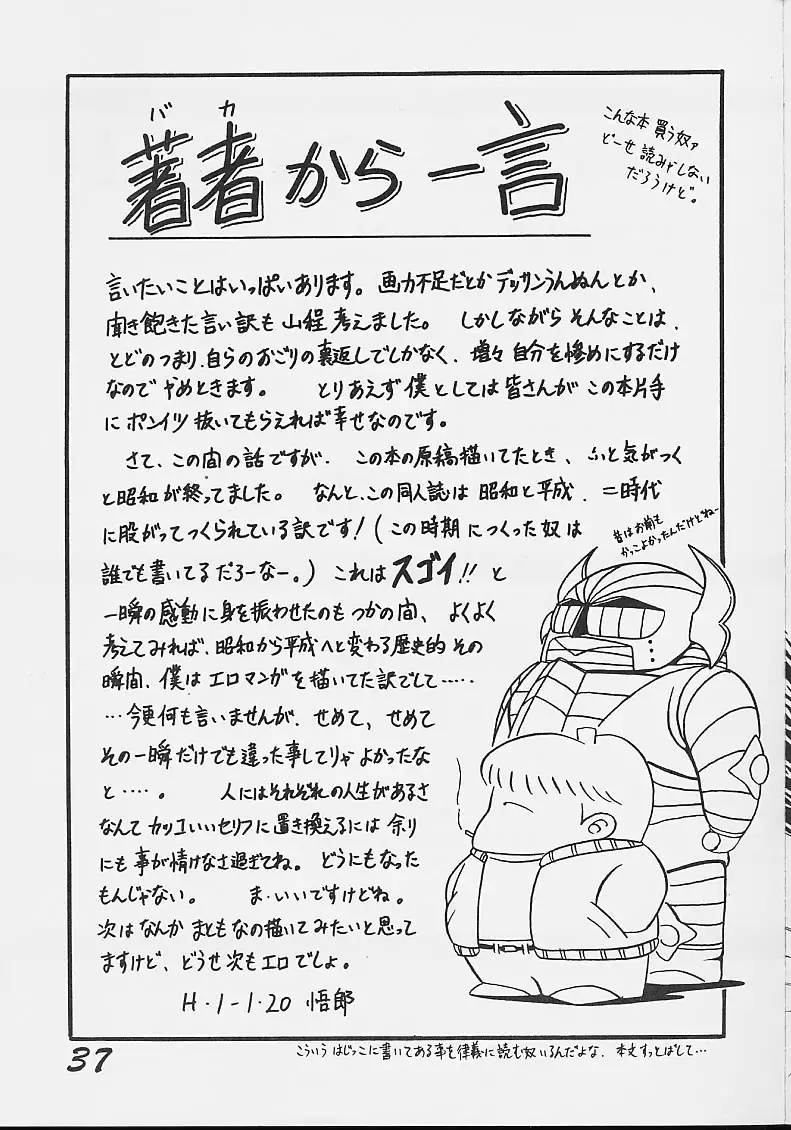 バカ
著者から一言
こんな本買う奴ァ
どーせ読みゃしない
だろうけど。
言いたいことはいっぱいあります。画力不足だとかデッサンうんぬんとか、
聞き飽きた言い訳も山程考えました。しかしながらそんなことは、
とどのつまり、自らのおごりの裏返しでしかなく、増々自分を惨めにするだけ
なのでやめときます。とりあえず僕としては皆さんがこの本片手
にポンイツ抜いてもらえれば幸せなのです。
さて、この間の話ですが、この本の原稿描いてたとき、ふと気がつく
と昭和が終ってました。なんと、この同人誌は昭和と平成、二時代
に股がってつくられている訳です!(この時期につくった奴は
誰でも書いてるだろーなー。)これはスゴイ!!と
一瞬の感動に身を振わせたのもつかの間、よくよく
考えてみれば、昭和から平成へと変わる歴史的その
瞬間、僕はエロマンガを描いてた訳でして……
…今更何も言いませんが、せめて、せめて
その一瞬だけでも違った事してりゃよかったな
と……。人にはそれぞれの人生があるさ
なんてカッコいいセリフに置き換えるには余り
にも事が情けなさ過ぎてね。どうにもなった
もんじゃない。ま・いいですけどね。
次はなんかまともなの描いてみたいと思って
ますけど、どうせ次もエロでしょ。
H・1-1・20 悟郎
昔はお前も
かっこよかったんだけどねー
37
こういうはじっこに書いてある事を律義に読む奴いるんだよな、本文すっとばして…